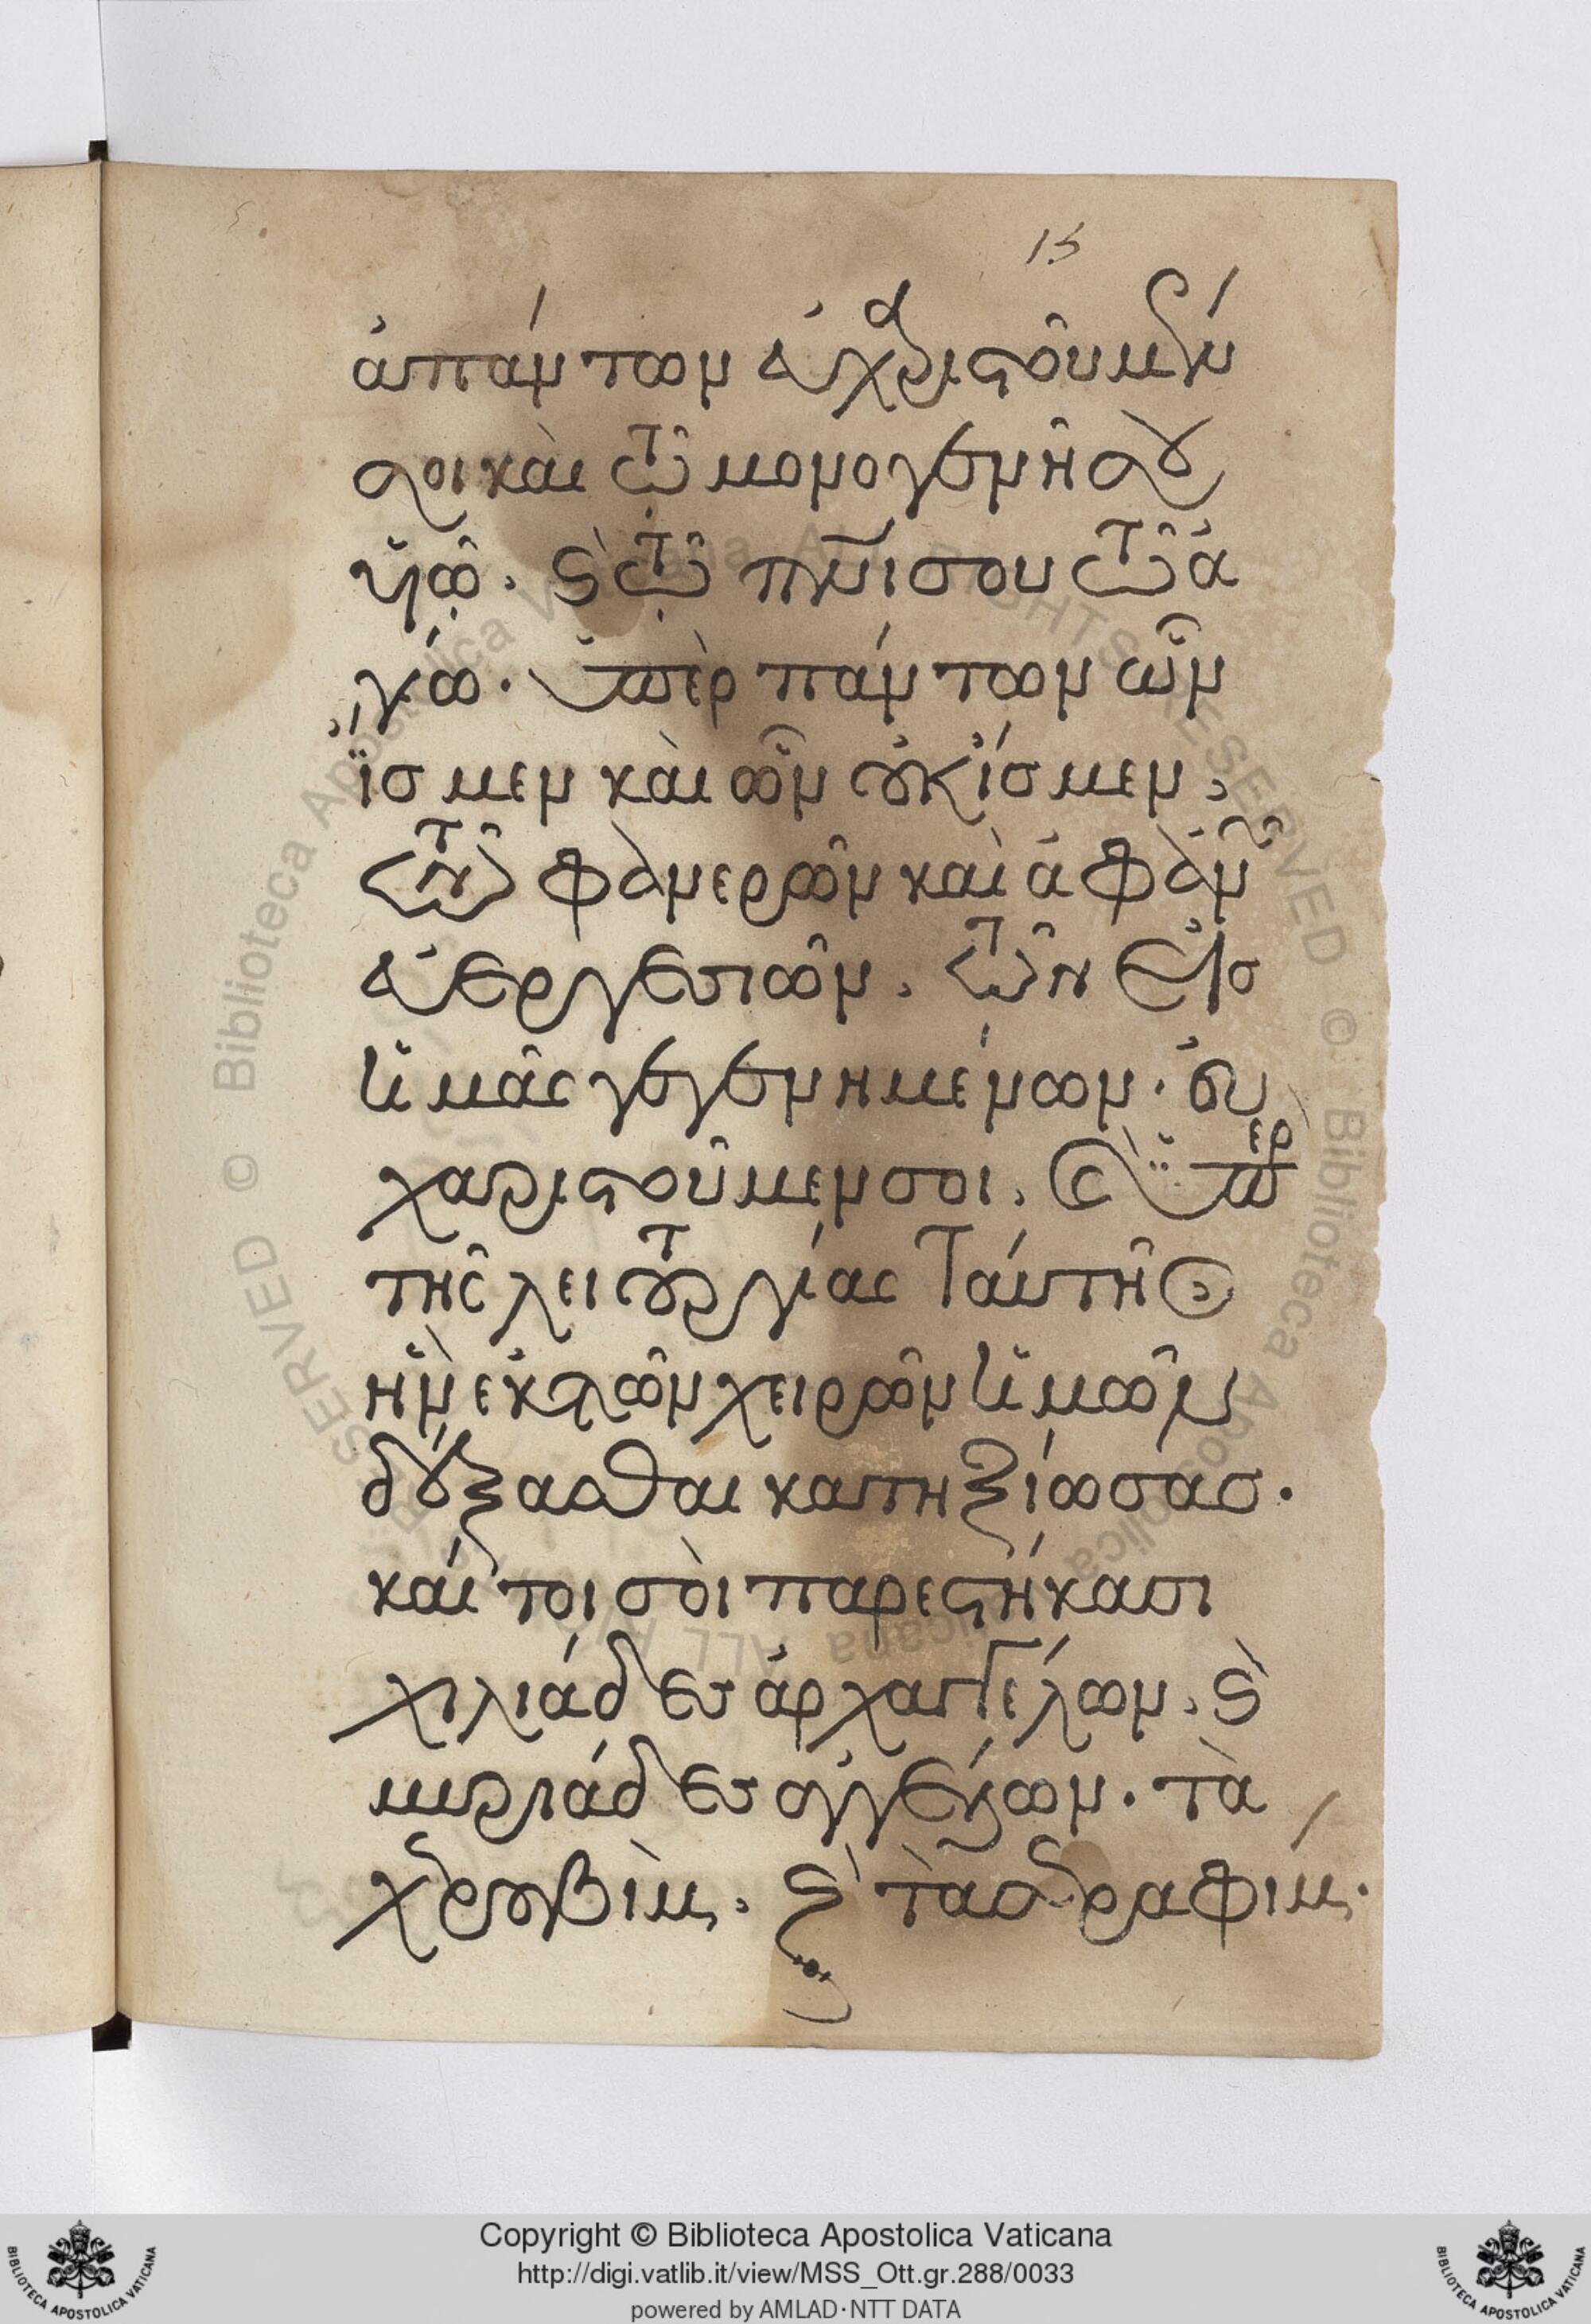 15
ἁπάντων εὐχαριστοῦμέν
σοι καὶ τῷ μονογενῆ σου
υἱῷ. καὶ τῷ πνι σου τῷ ἁ
γίῳ. ὑπὲρ πάντων ὧν
ἴσμεν καὶ ὧν οὐκ ἴσμεν,
τῶν φανερῶν καὶ ἀφανῶν
εὐεργεσιῶν, τῶν εἰσ
ἡμᾶς γεγενημένων. εὐ
χαριστοῦμεν σοι, καὶ ὑπὲρ
τῆς λειτουργίας ταύτης
ἣν ἐκ τῶν χειρῶν ἡμῶν
δέξασθαι κατηξίωσας.
καί τοι σοὶ παρεστήκασι
χιλιάδες ἀρχαγγέλων, καὶ
μυριάδες ἀγγέλων. τὰ
χερουβὶμ, καὶ τὰ σεραφίμ.
BIBLIOTECA APOSTOLICA VATICANA
Copyright © Biblioteca Apostolica Vaticana
http://digi.vatlib.it/view/MSS_Ott.gr.288/0033
powered by AMLAD·NTT DATA
BIBLIOTECA APOSTOLICA VATICANA
© Biblioteca Apostolica Vaticana ALL RIGHTS RESERVED
© Biblioteca Apostolica Vaticana ALL RIGHTS RESERVED